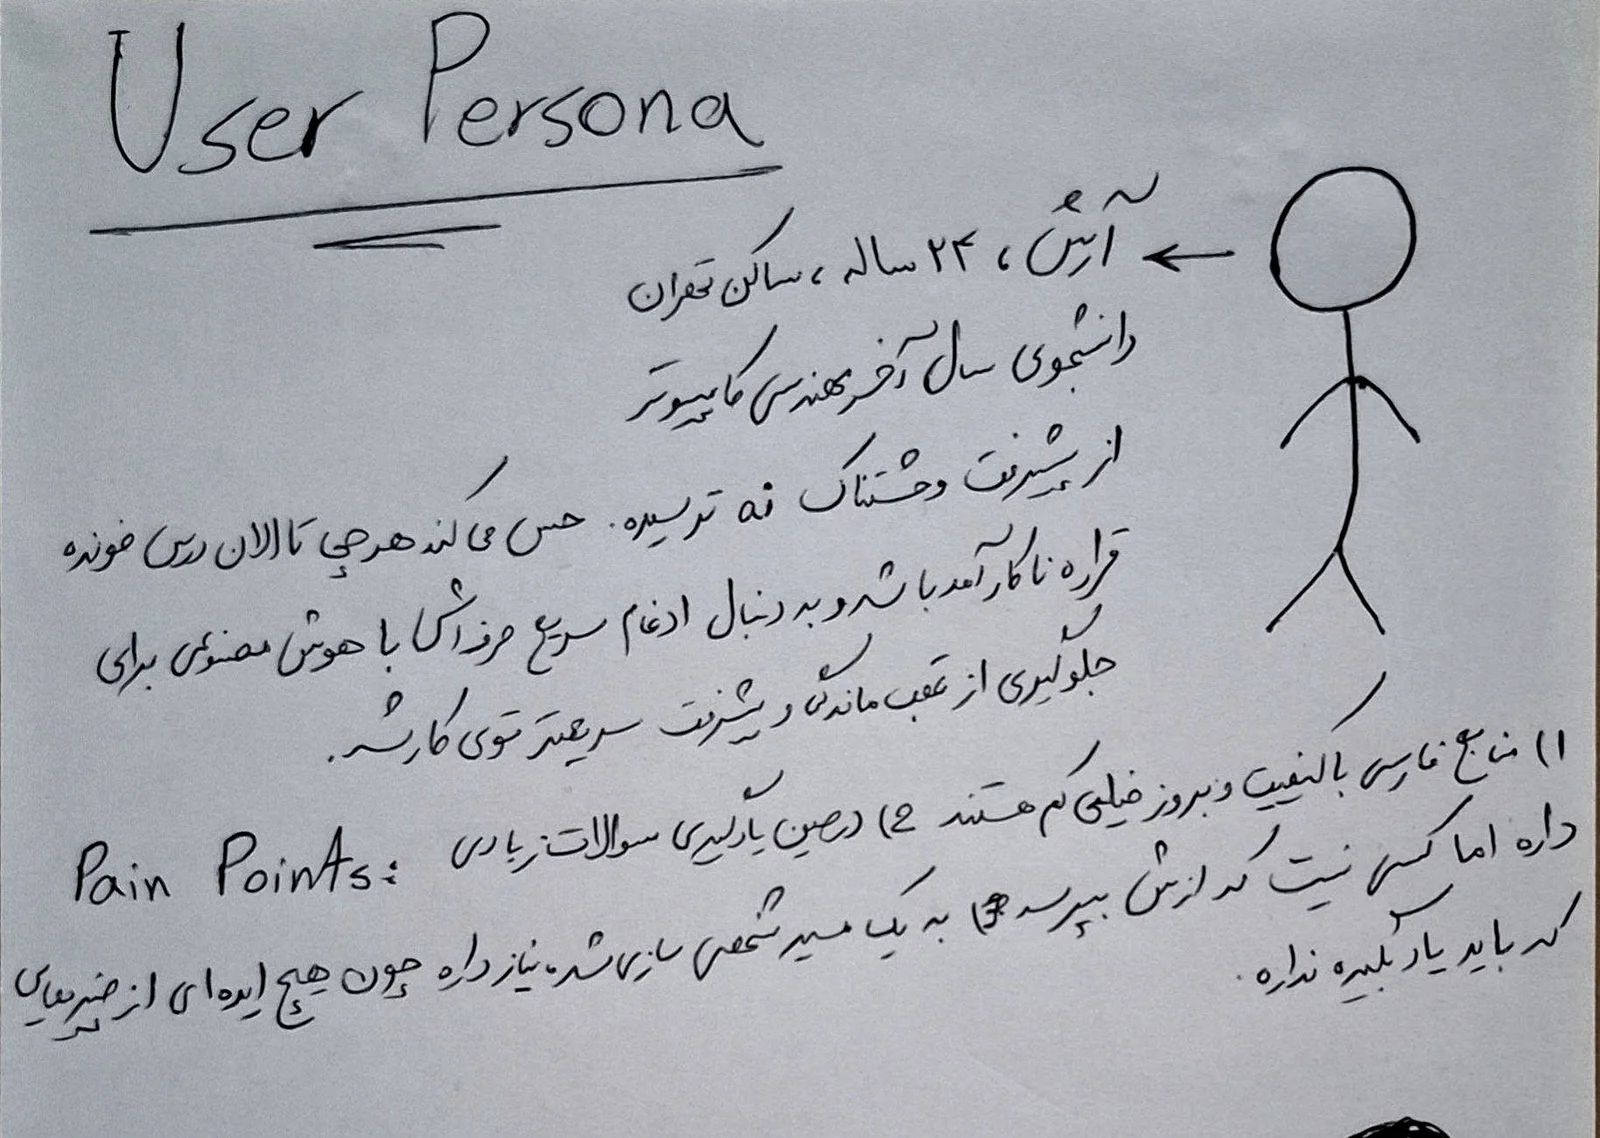 User Persona
آرش، ۲۴ ساله، ساکن تهران
دانشجوی سال آخر مهندسی کامپیوتر
از پیشرفت وحشتناک ترسیده. حس می کند هرچی تا الان درس خونده
قراره ناکارآمد باشد و به دنبال ادغام سریع حرفه اش با هوش مصنوعی برای
جلوگیری از عقب ماندگی و پیشرفت سریعتر توی کارشه.
Pain Points: ۱) منابع فارسی باکیفیت و بروز خیلی کم هستند 2) درحین یادگیری سوالات زیادی
داره اما کسی نیست که ازش بپرسه 3) به یک مسیر شخصی سازی شده نیاز داره چون هیچ ایده ای از چیزهایی
که باید یاد بگیره نداره.